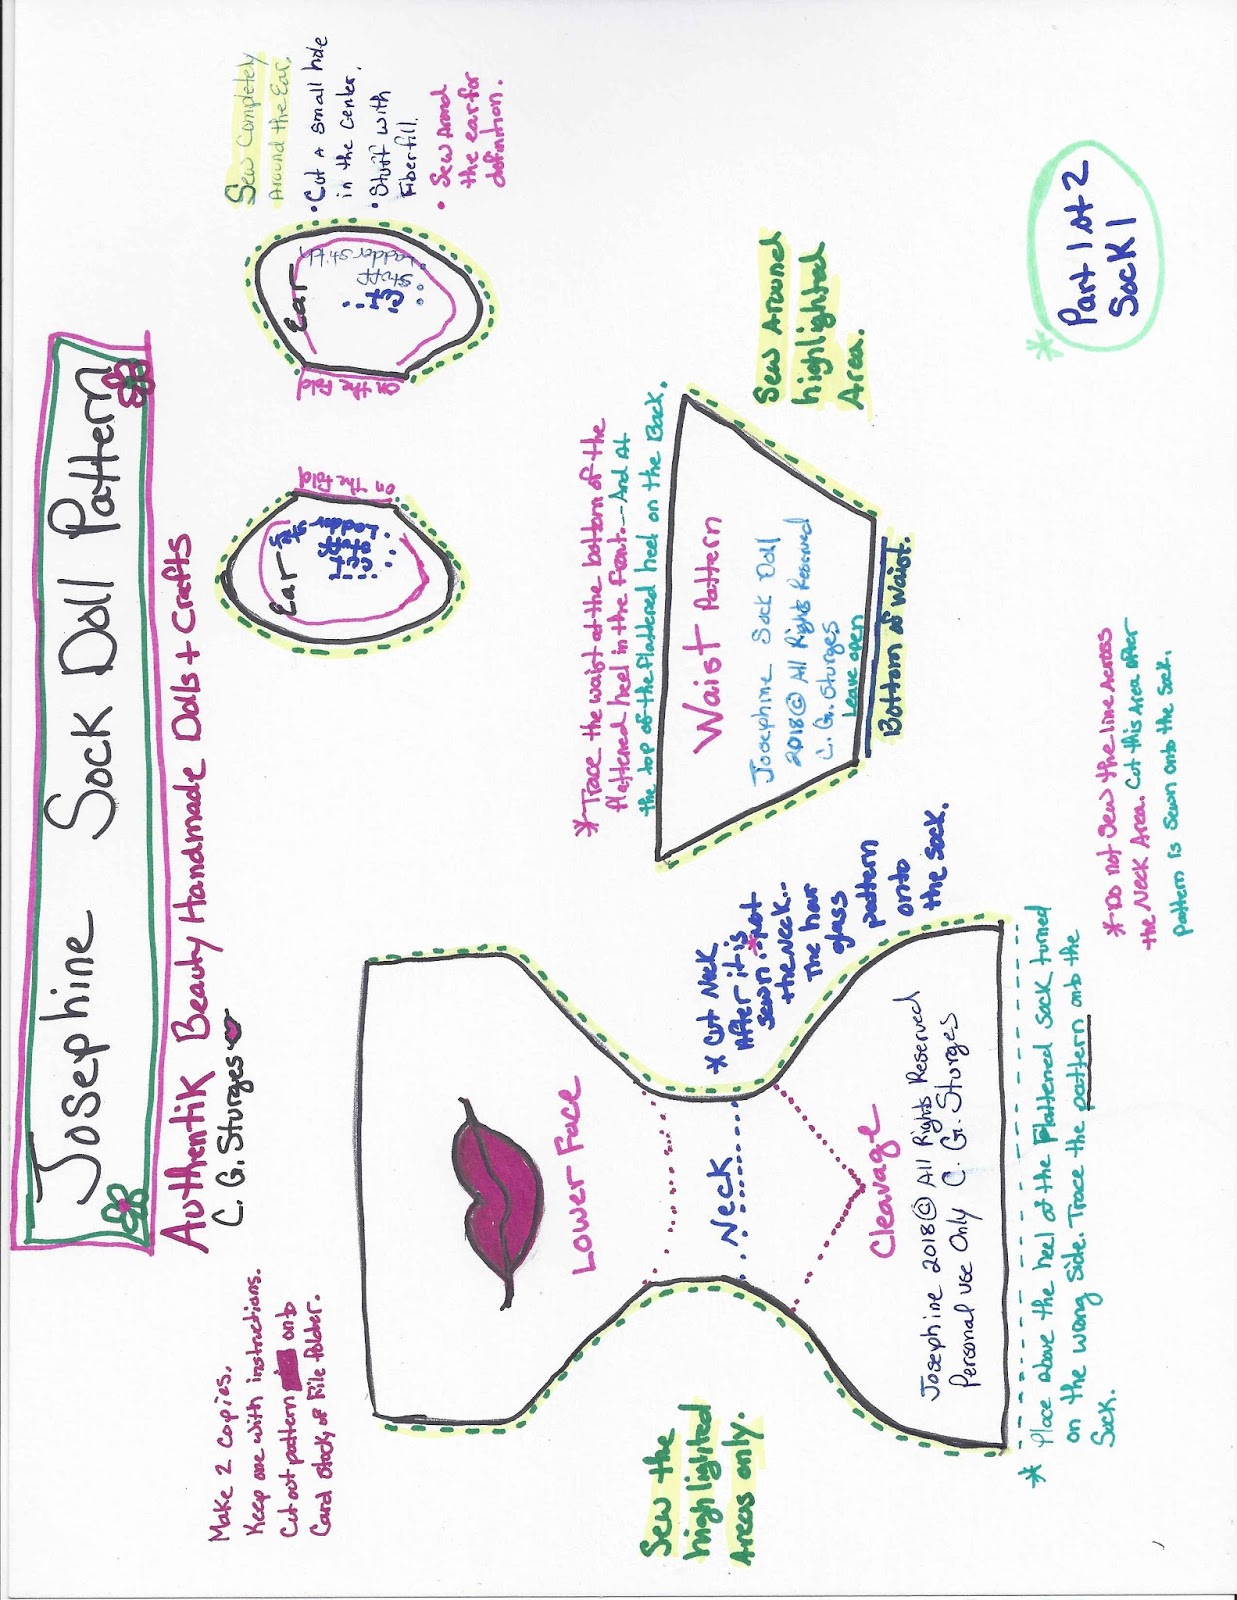 Josephine Sock Doll Pattern
Authentik Beauty Handmade Dolls + Crafts
C. G. Sturges
Make 2 copies.
Keep one with instructions.
Cut out pattern onto
Card stock or File folder.
Ear
Cut
Stuff
Ladder
stitch
on
the
Fold
Ear
Cut
Stuff
Ladder stitch
on
the
Fold
Sew Completely
Around the Ear.
• Cut a small hole
in the center.
• Stuff with
Fiberfill.
• Sew Around
the ear for
definition.
Lower Face
Neck
Cleavage
Josephine 2018 © All Rights Reserved
Personal use Only C. G. Sturges
Sew the
highlighted
Areas only.
* Cut Neck
After it is
sewn. *Not
the Neck..
The hour
glass
pattern
onto
the sock.
* Place above the heel of the Flattened sock turned
on the wrong side. Trace the pattern onto the
Sock.
* Trace the waist at the bottom of the
flattened heel in the front. - And At
the top of the flattened heel on the Back.
Waist Pattern
Josephine Sock Doll
2018 © All Rights Reserved
C. G. Sturges
Leave open
Bottom of Waist.
Sew Around
highlighted
Area.
* Do not Sew the line Across
the Neck Area. Cut this Area after
pattern is sewn onto the Sock.
* Part 1 of 2
Sock 1